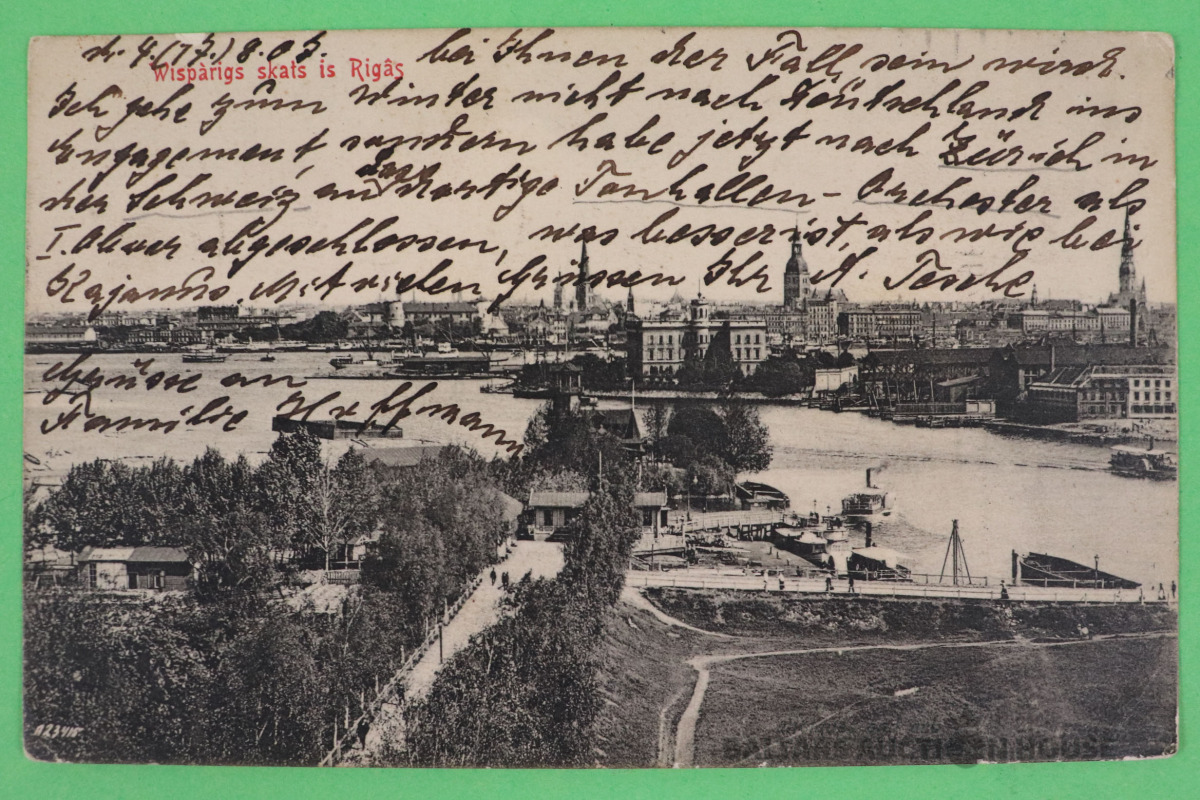 d. 4.(17.) 8. 07. bei Ihnen der Fall sein wird.
Wispàrigs skats is Rigâs
Ich gehe zum Winter nicht nach Deutschland ins
Engagement, sondern habe jetzt nach Zürich in
der Schweiz an das dortige Tonhallen-Orchester als
I. Oboer abgeschlossen, was besser ist, als wie bei
Kajanus. Mit vielen Grüssen Ihr A. Tesche
Grüsse an
Familie Hoffmann
BALTARS AUCTION HOUSE